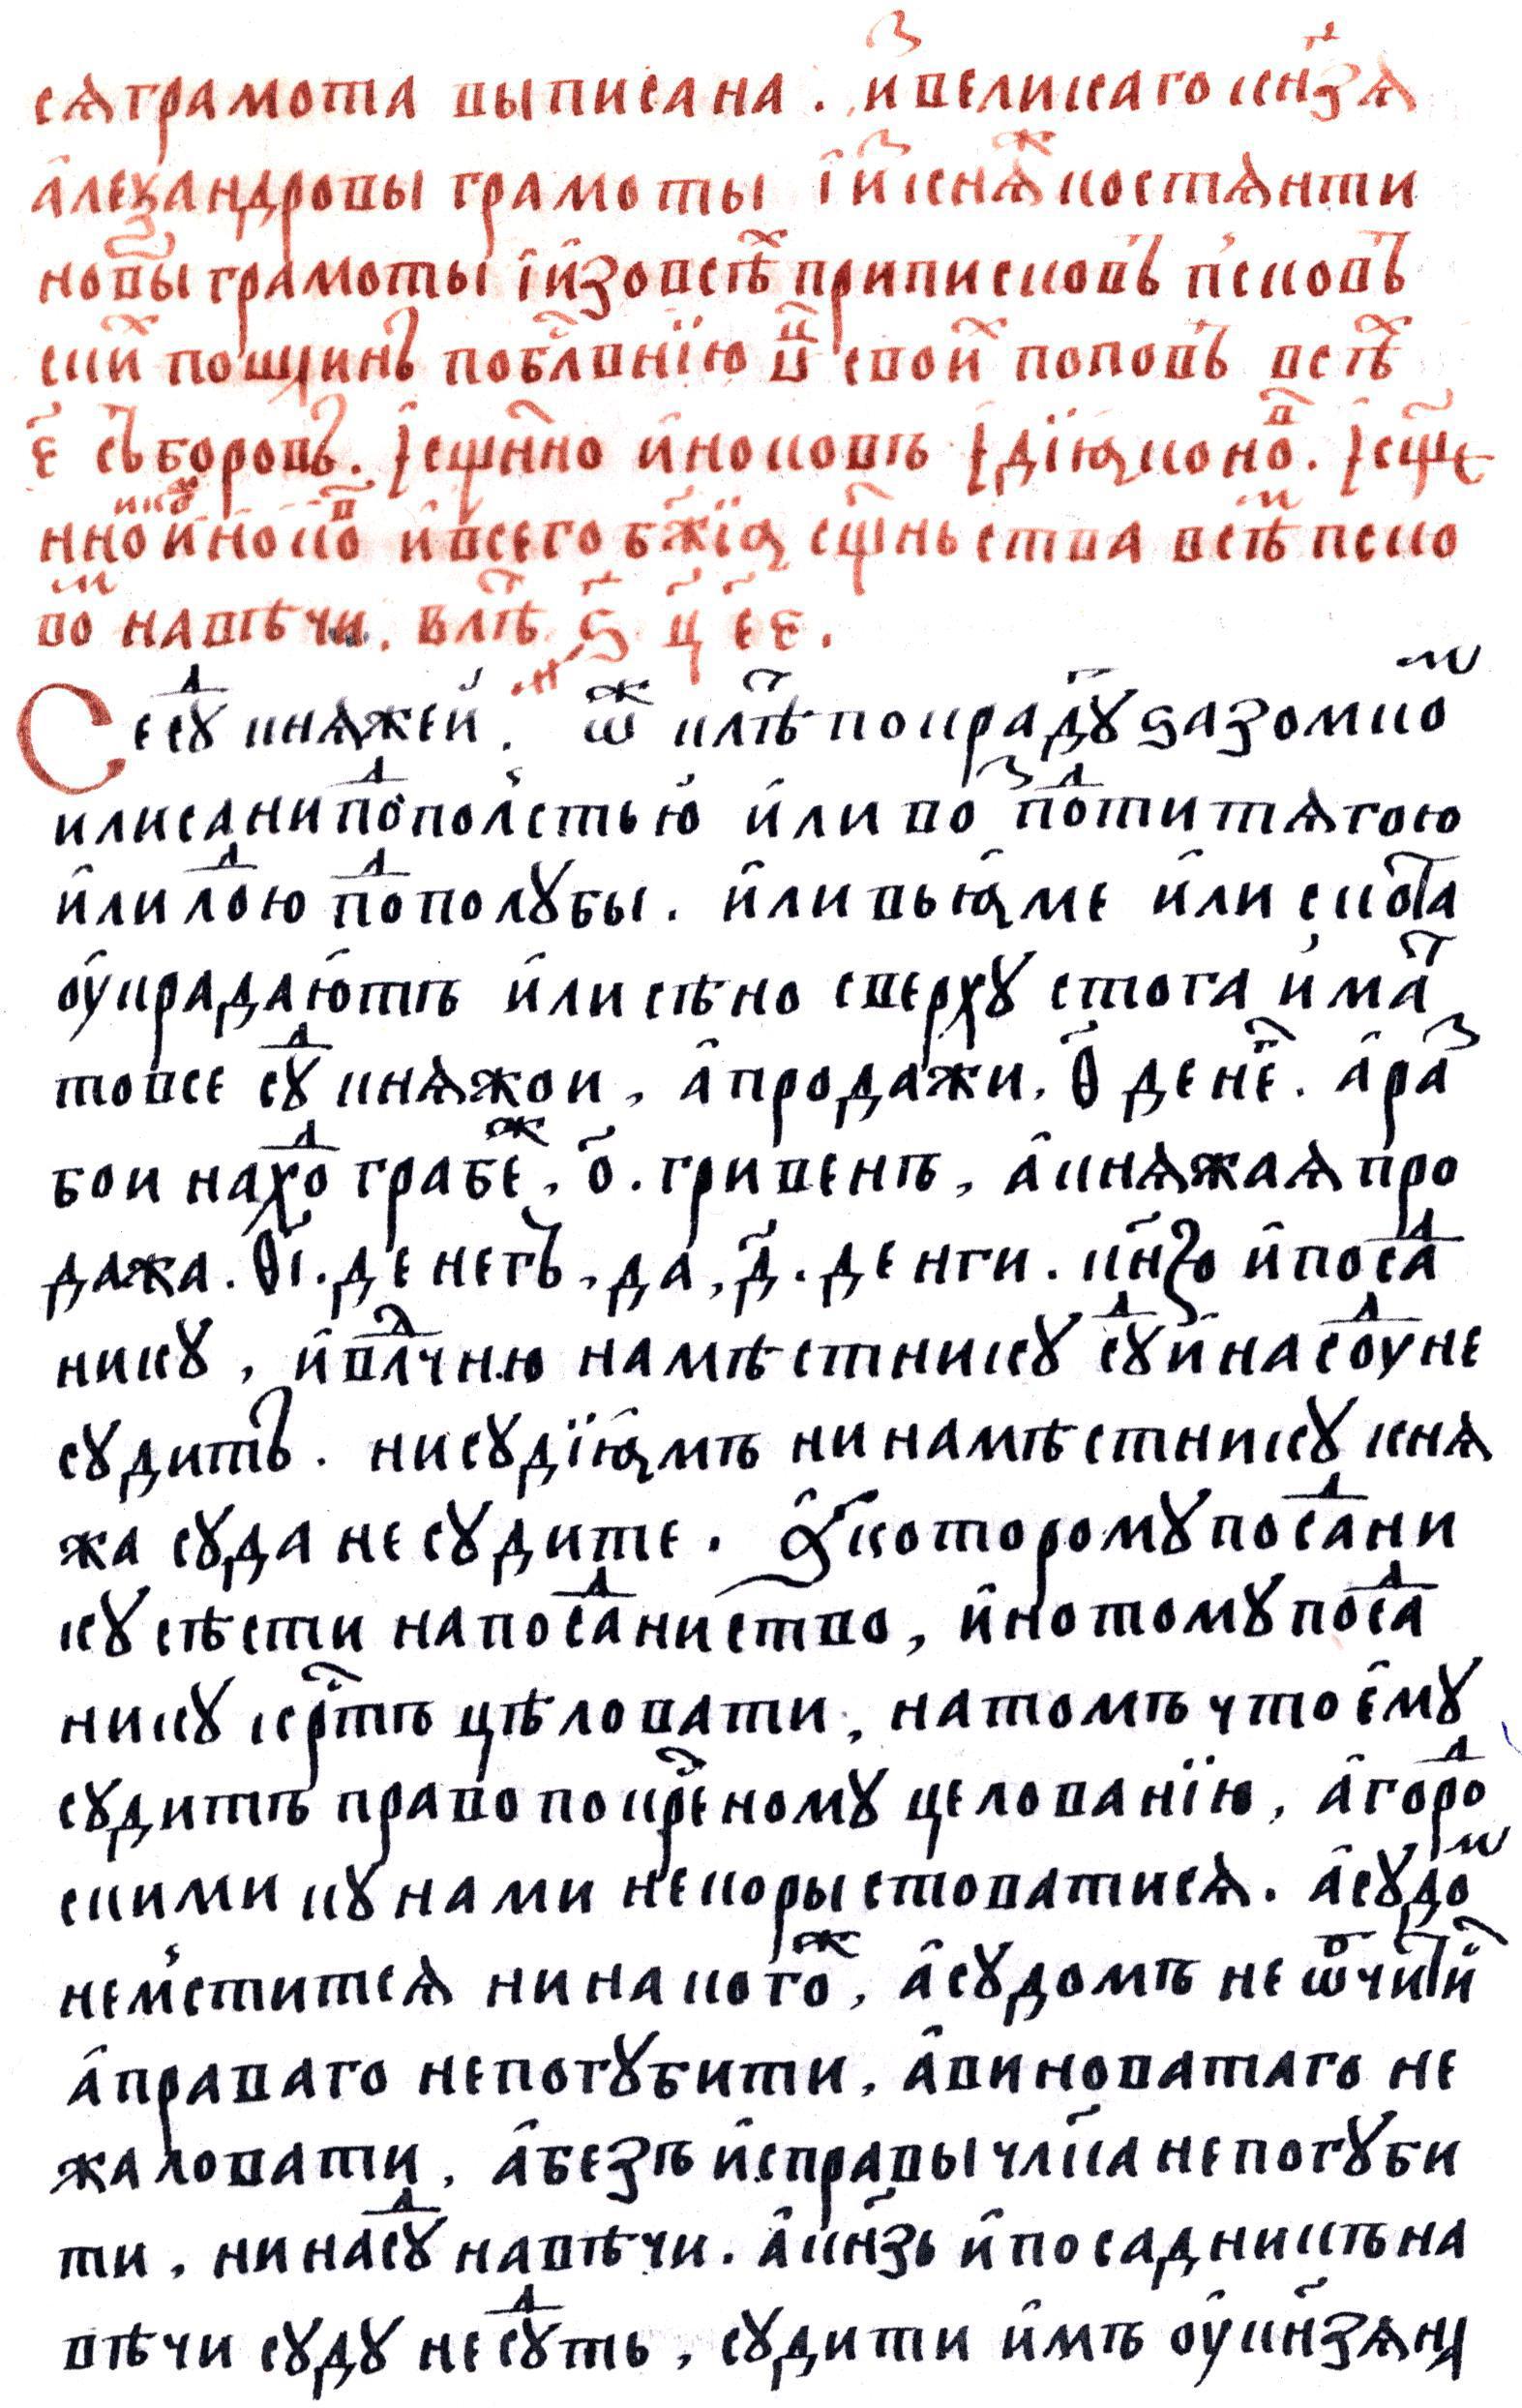 сѧ грамота выписана . из великаго кн҃зѧ
а҆леѯандровы грамоты і҆ и҆з кнѧж костѧнти
новы грамоты і҆ и҆зо всѣх приписковъ п́сков
ских пошлинъ по бл҃вн҃їю ѿц҃ъ свои҆х поповъ всѣх
е҃ съборовъ . і҆ сщ҃нно и҆ноковъ і҆ дїꙗконов . і҆ сщ҃е
нников и҆ноков и҆ всего бж҃їꙗ сщ҃ньства всѣм пско
вом на вѣчи . в лѣт ҂ѕ҃ ц҃ е҃ е .
Се суд кнѧжеи . ѡж клѣт покрадут за зомком
или сани под полстью и҆ли воз под титѧгою
и҆ли лодю под полубы . и҆ли в ьꙗме или скота
ѹкрадаю҆тъ и҆ли сѣно сверху стога и҆мат
то все суд кнѧжои , а҆ продажи , ѳ҃ денег . а҆ раз
бои наход грабеж , о҃ . гривенъ , а҆ кнѧжаѧ про
дажа . ѳ҃і . денегъ , да , д҃ . денги . кн҃зю и҆ посад
нику , и҆ влдчню намѣстнику суд и҆ на суд не
судитъ . ни судїꙗмъ ни намѣстнику кнѧ
жа суда не судите . а҆ которому посадни
ку сѣсти на посадниство , и҆но тому посад
нику крстъ цѣловати , на томъ что е҆му
судитъ право по крстному целованїю , а҆ город
скими кунами не користоватисѧ . а҆ судом
не мститисѧ ни на когож , а҆ судомъ не ѿчитись
а҆ праваго не погубити , а҆ виноватаго не
жаловати , а҆ безъ и҆справы члка не погуби
ти , ни на суду на вѣчи . а҆ кн҃зь и҆ посадникъ на
вѣчи суду не судѧть , судити и҆мъ ѹ кн҃зѧ на